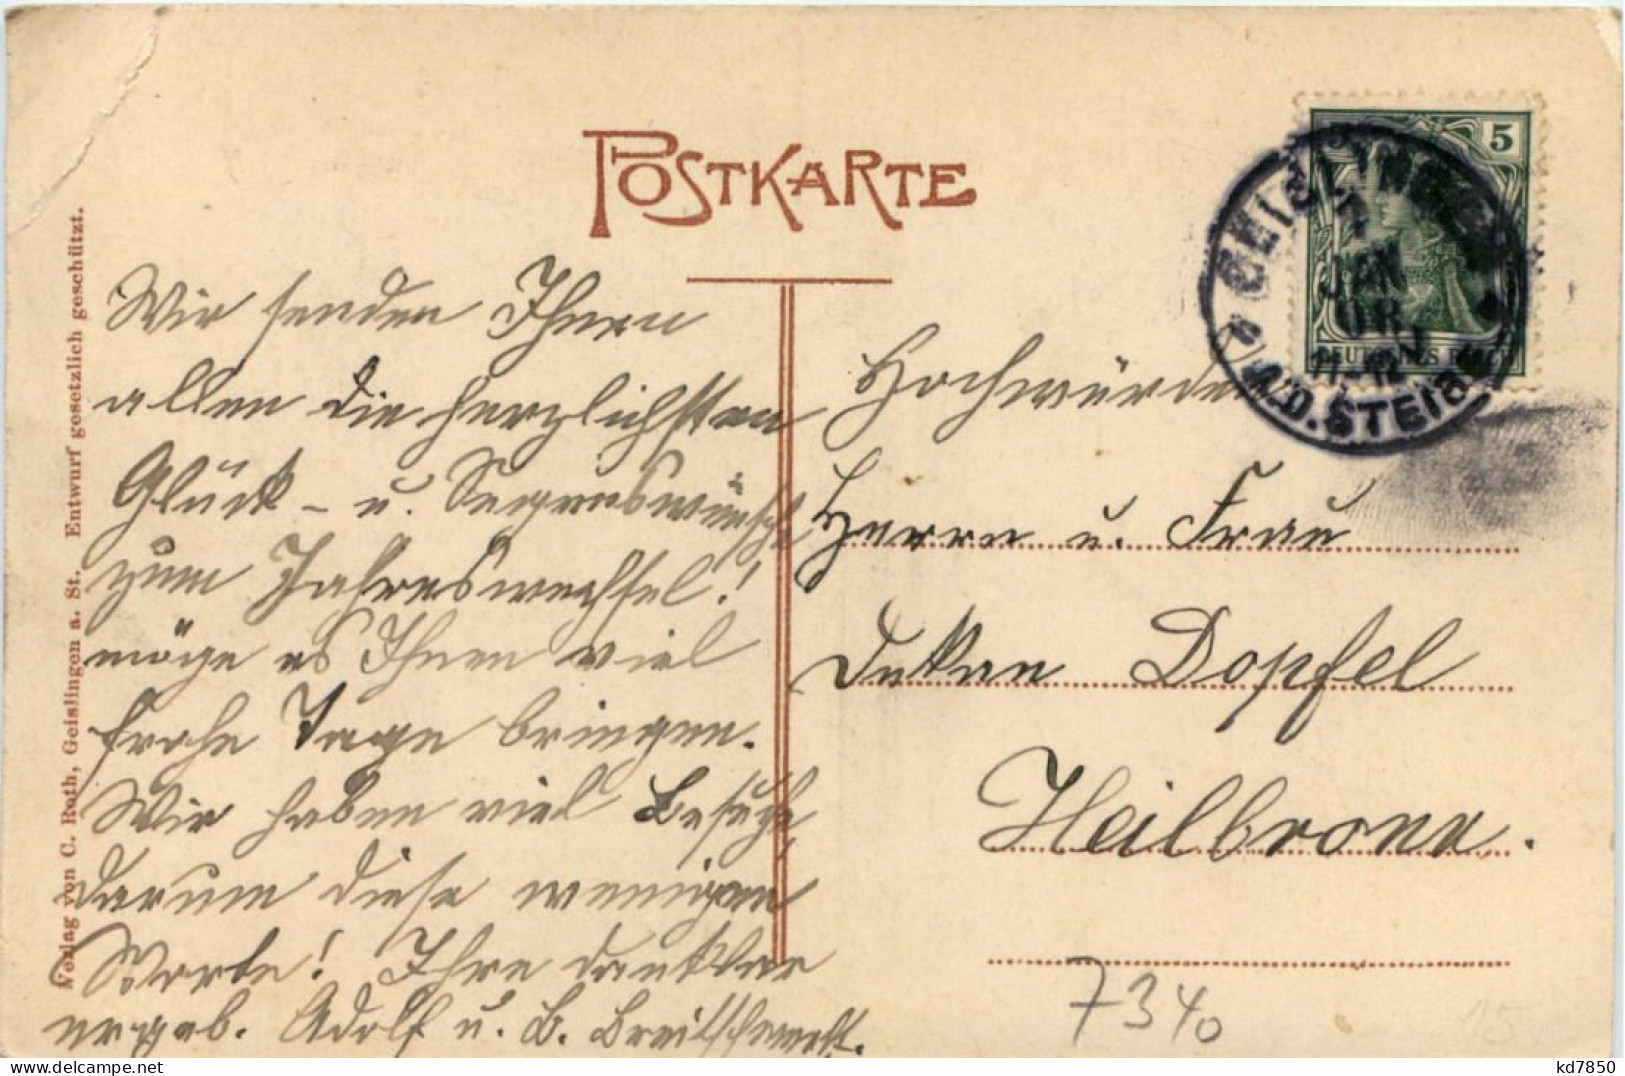 POSTKARTE
Wir senden Ihnen
allen die herzlichsten
Glück- u. Segenswünsche
zum Jahreswechsel!
möge es Ihnen viel
frohe Tage bringen.
Wir haben viel Besuch,
darum diese wenigen
Worte! Ihre dankbar
ergeb. Adolf u. B. Breitschwerdt.
Hochwürden
Herrn u. Frau
Dekan Dopfel
Heilbronn.
7340
15
5
DEUTSCHES REICH
GEISLINGEN
JAN
08
11-12
A.D.STEIGE
Verlag von C. Roth, Geislingen a. St. Entwurf gesetzlich geschützt.
kd7850